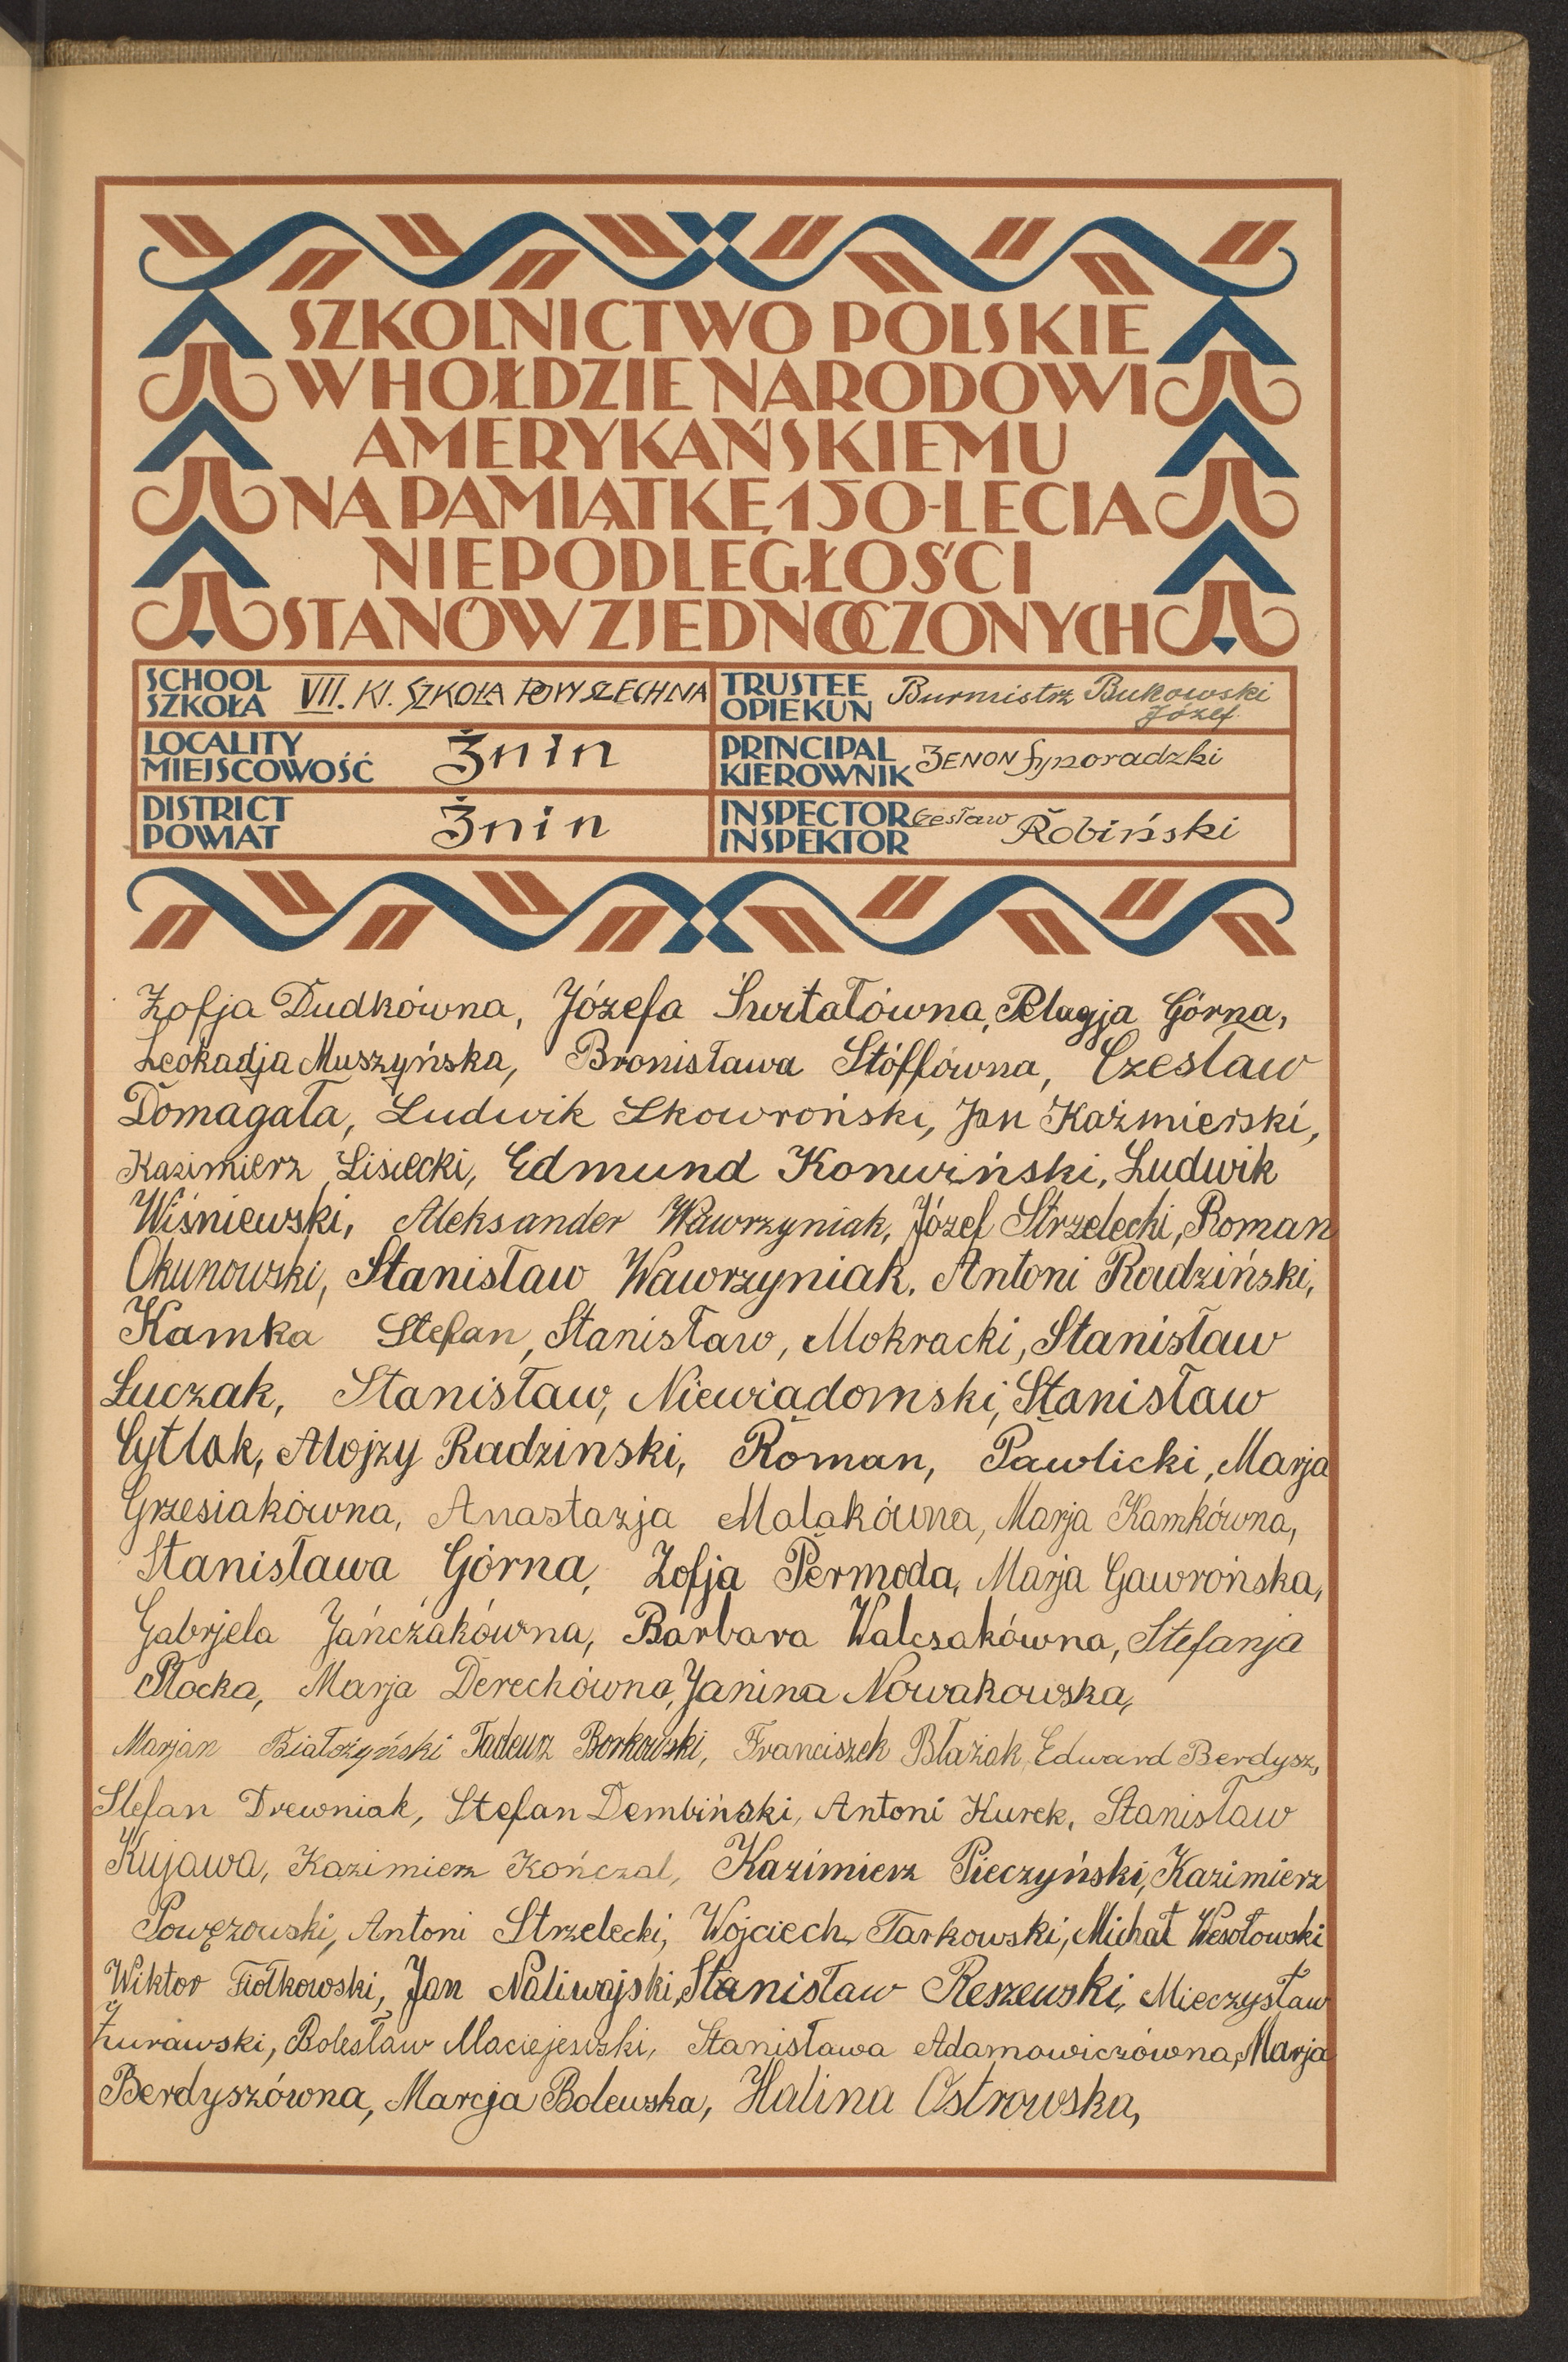 SZKOLNICTWO POLSKIE
W HOŁDZIE NARODOWI
AMERYKAŃSKIEMU
NA PAMIĄTKĘ 150-LECIA
NIEPODLEGŁOŚCI
STANÓW ZJEDNOCZONYCH
SCHOOL
SZKOŁA
VII. Kl. SZKOŁA POWSZECHNA
TRUSTEE
OPIEKUN
Burmistrz Bukowski
Józef
LOCALITY
MIEJSCOWOŚĆ
Żnin
PRINCIPAL
KIEROWNIK
ZENON Syporadzki
DISTRICT
POWIAT
Żnin
INSPECTOR
INSPEKTOR
Robiński
Zofja Dudkówna, Józefa Świtałówna, Pelagja Górna,
Leokadja Muszyńska, Bronisława Stóffówna, Czesław
Domagała, Ludwik Skowroński, Jan Kaźmierski,
Kazimierz Lisiecki, Edmund Konwiński, Ludwik
Wiśniewski, Aleksander Wawrzyniak, Józef Strzelecki, Roman
Okunowski, Stanisław Wawrzyniak, Antoni Radziński,
Kamka Stefan, Stanisław, Mokracki, Stanisław
Łuczak, Stanisław, Niewiadomski, Stanisław
Cytlak, Alojzy Radzinski, Roman, Pawlicki, Marja
Grzesiakówna, Anastazja Malakówna, Marja Kamkówna,
Stanisława Górna, Zofja Permoda, Marja Gawrońska,
Gabrjela Jańczakówna, Barbara Walcsakówna, Stefanja
Płocka, Marja Derechówna, Janina Nowakowska,
Marjan Białożyński Tadeusz Borkowski, Franciszek Błażak, Edward Berdysz,
Stefan Drewniak, Stefan Dembiński, Antoni Kurek, Stanisław
Kujawa, Kazimierz Kończal, Kazimierz Pieczyński, Kazimierz
Powęzowski, Antoni Strzelecki, Wojciech Tarkowski, Michał Wesołowski
Wiktor Fiołkowski, Jan Naliwajski, Stanisław Reszewski, Mieczysław
Żurawski, Bolesław Maciejewski, Stanisława Adamowiczówna, Marja
Berdyszówna, Marcja Bolewska, Halina Ostrowska,